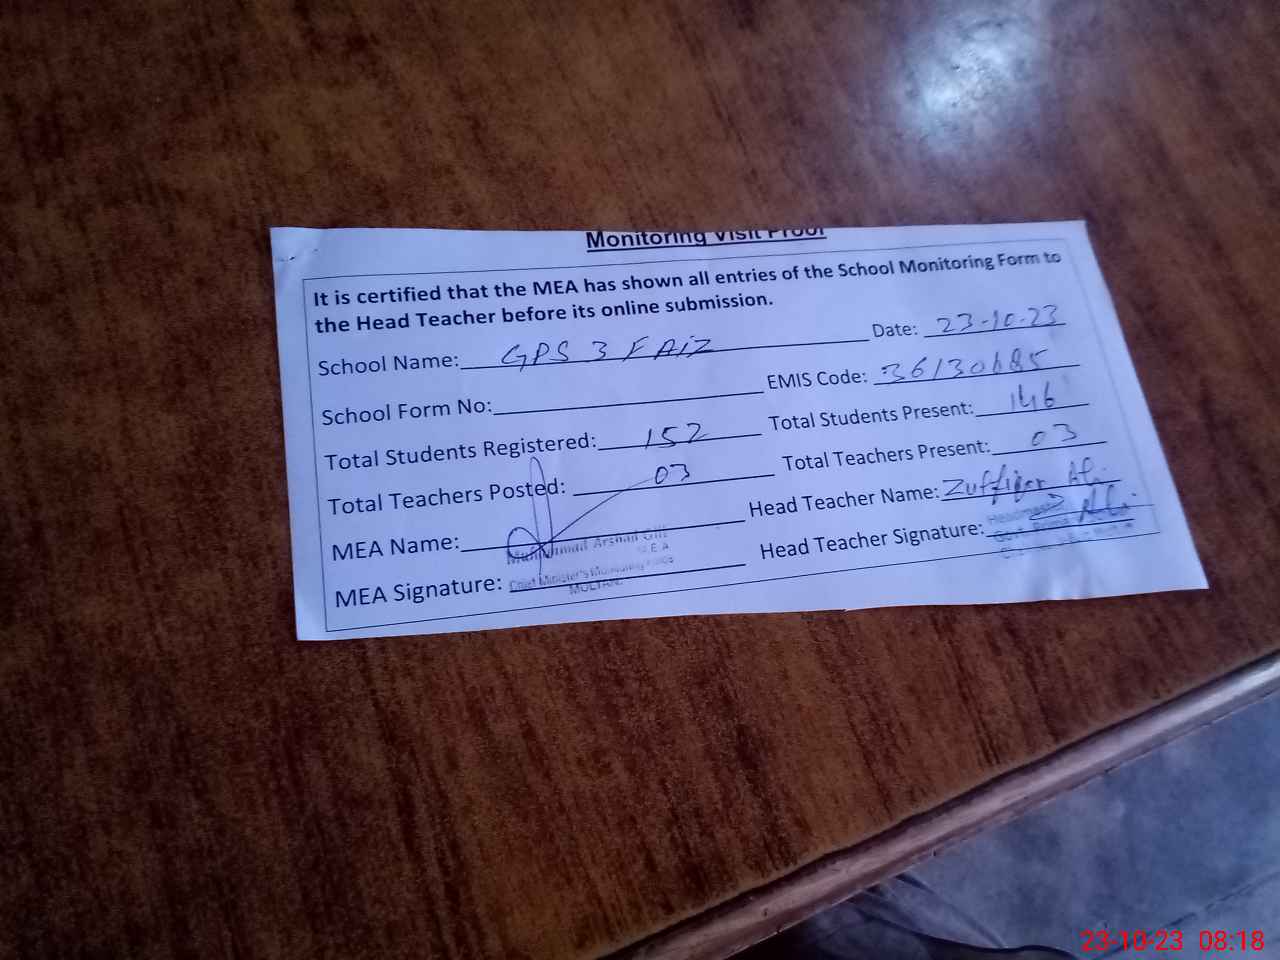 Monitoring Visit Proof
It is certified that the MEA has shown all entries of the School Monitoring Form to
the Head Teacher before its online submission.
School Name: GPS 3 FAIZ Date: 23-10-23
School Form No: EMIS Code: 36130685
Total Students Registered: 152 Total Students Present: 146
Total Teachers Posted: 03 Total Teachers Present: 03
MEA Name: Head Teacher Name: Ali
Muhammad Arshad Gill
M.E.A
MEA Signature: Head Teacher Signature:
Chief Minister's Monitoring Force
MULTAN.
Headmaster
23-10-23 08:18